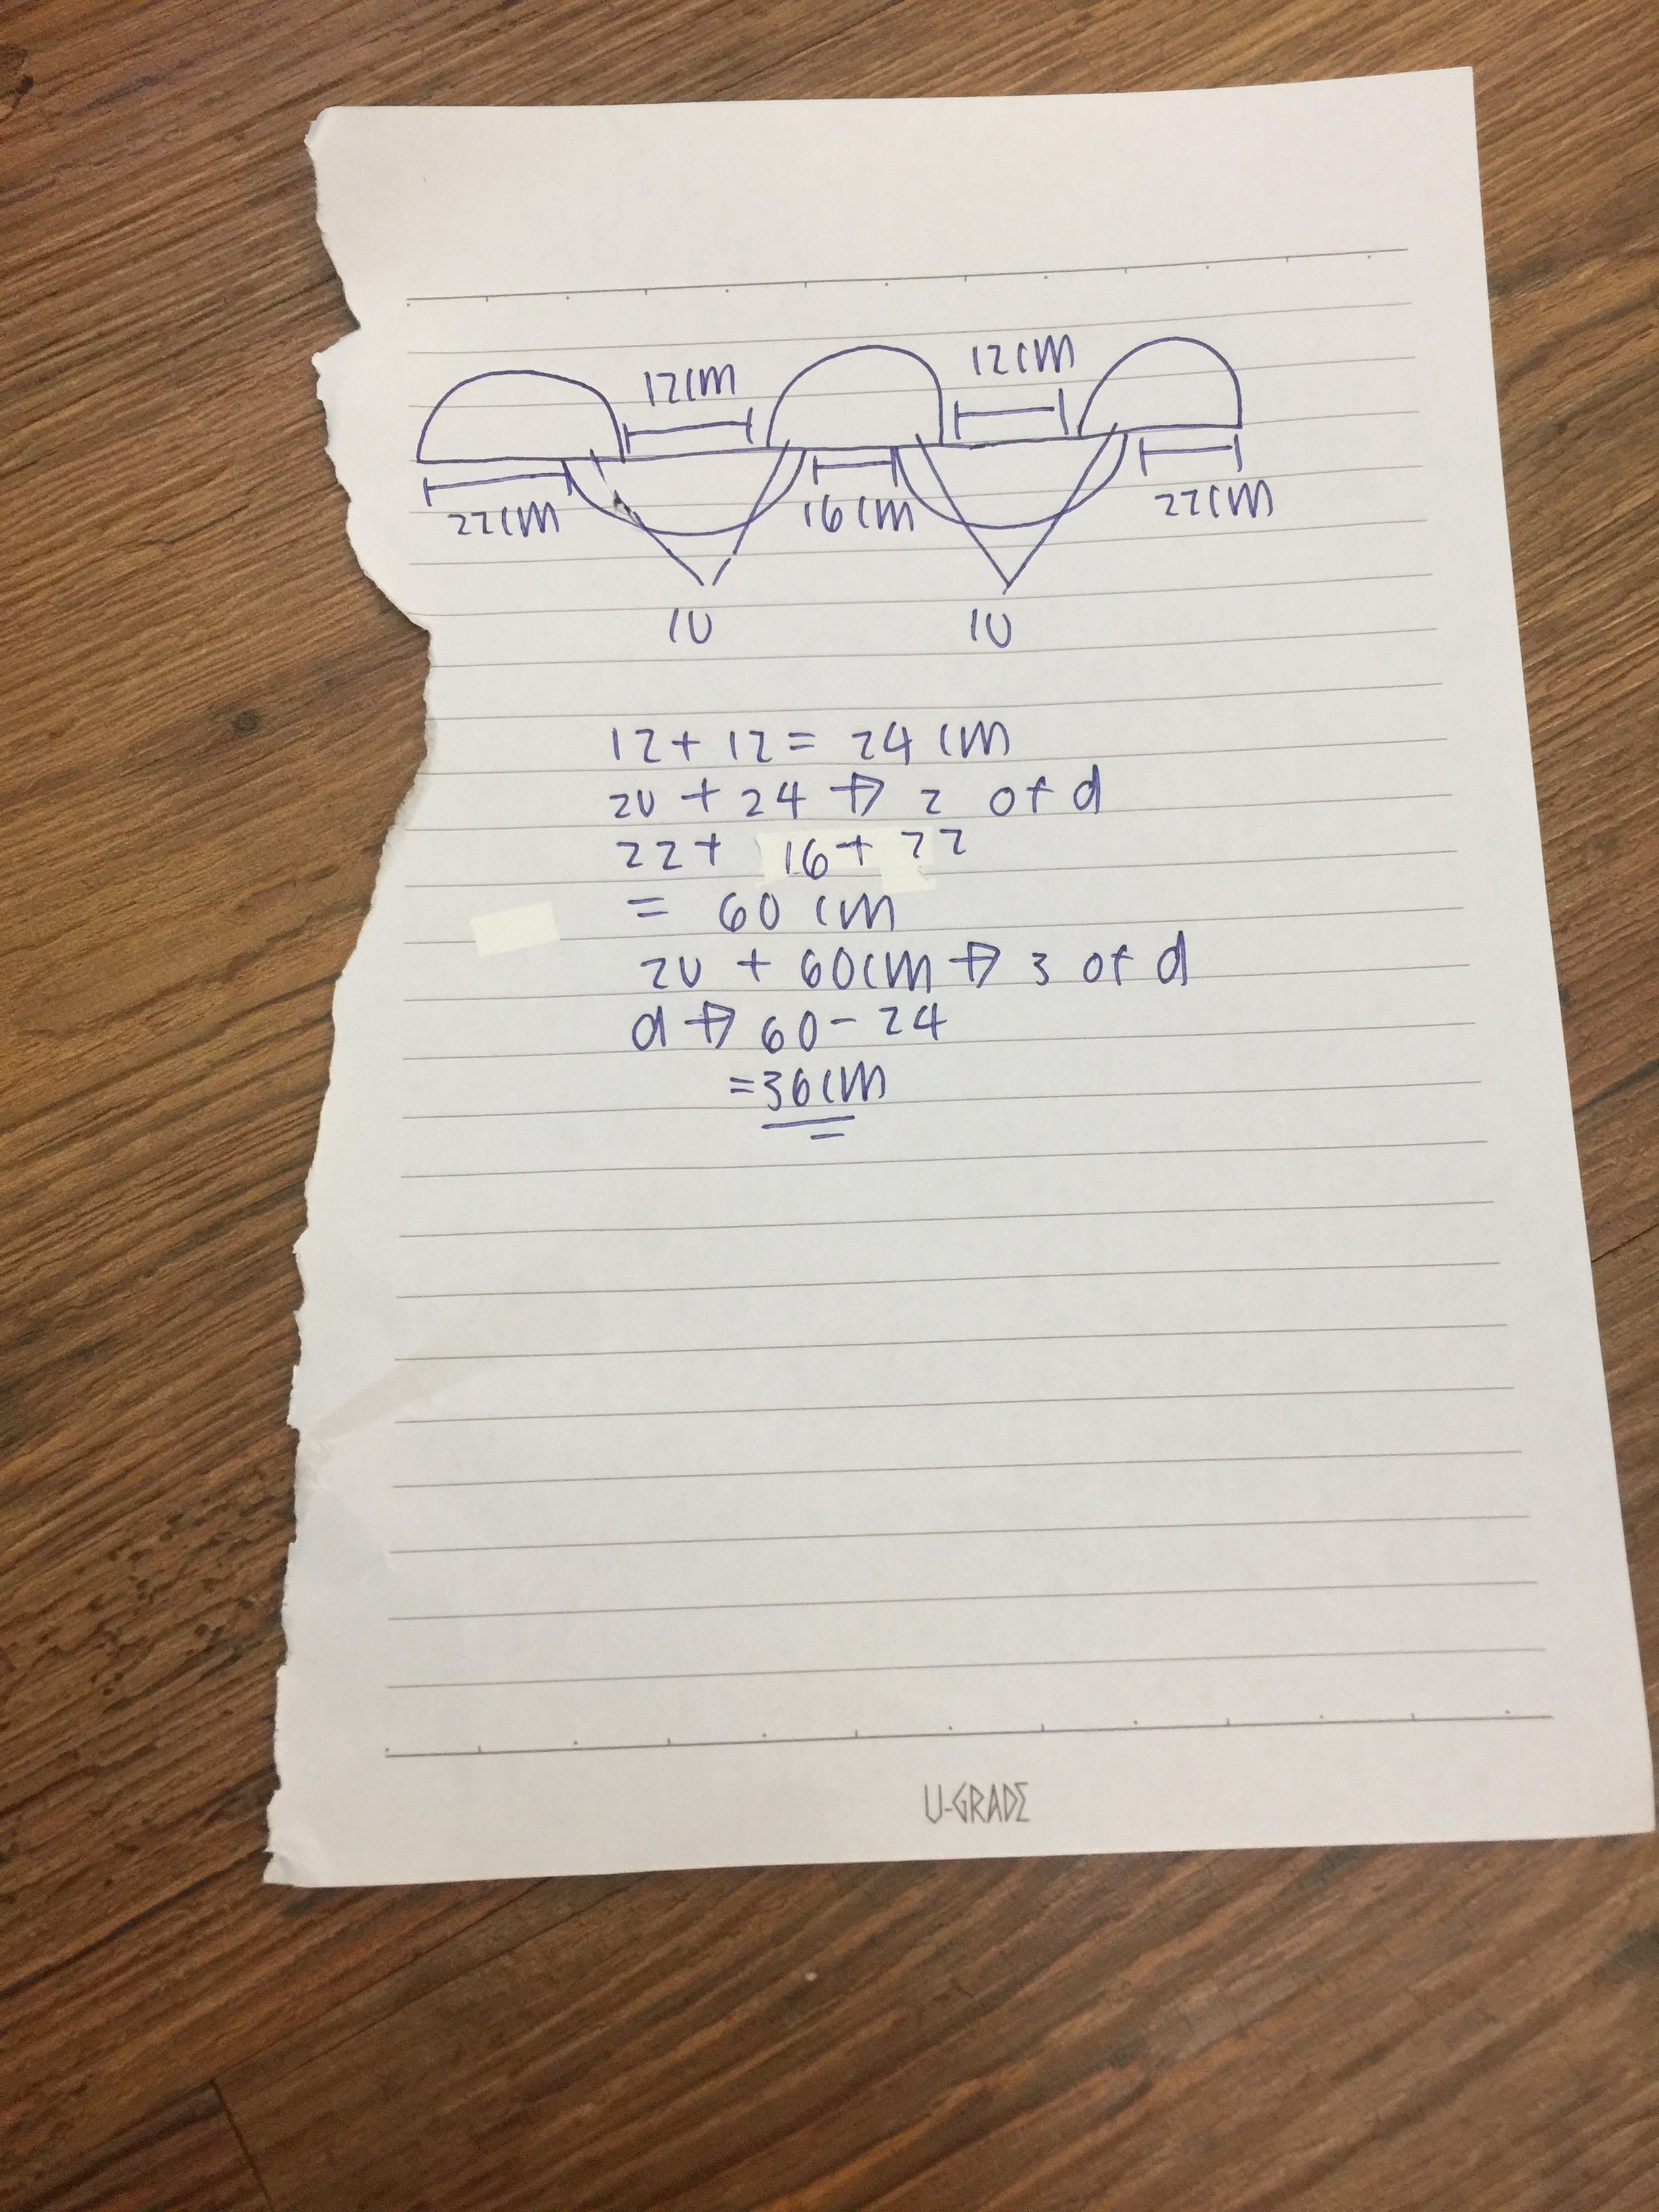 12cm
12cm
22cm
16cm
22cm
1U
1U
12 + 12 = 24 cm
2U + 24 → 2 of d
22 + 16 + 22
= 60 cm
2U + 60cm → 3 of d
d → 60 - 24
= 36cm
U-GRADE